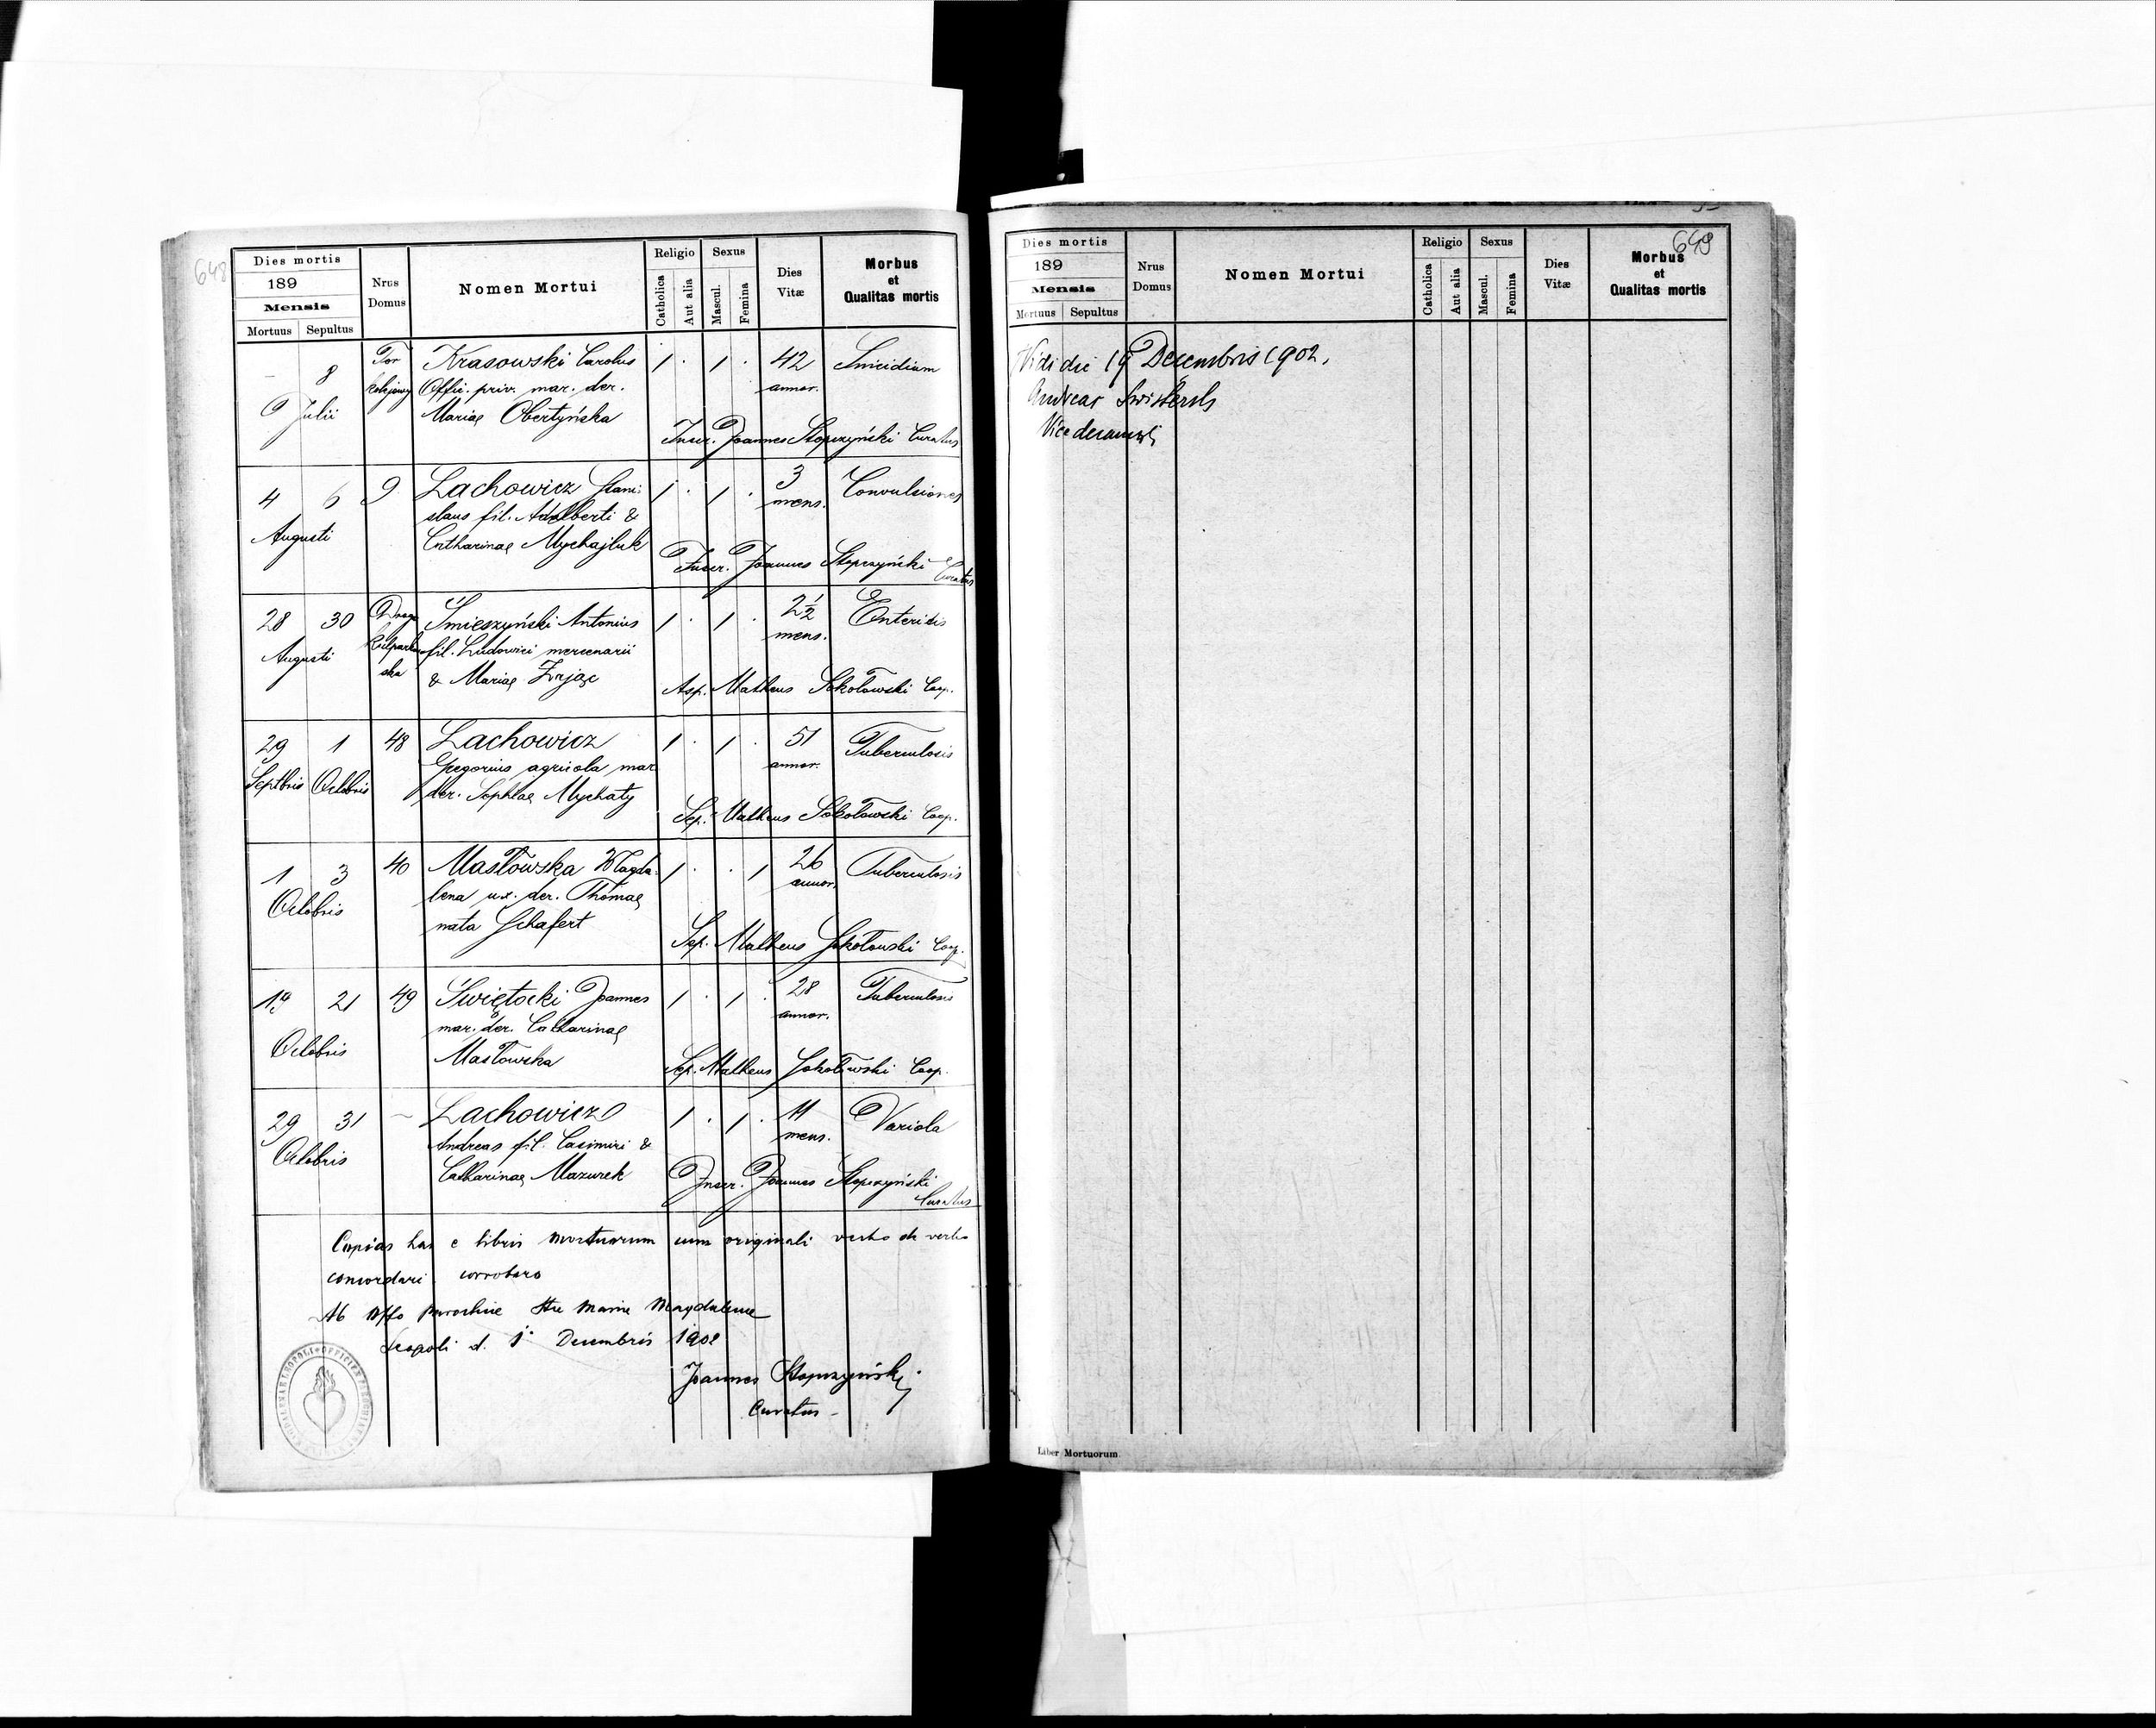 648
Dies mortis
189
Mensis
Mortuus Sepultus
Nrus Domus
Nomen Mortui
Religio
Catholica
Aut alia
Sexus
Mascul.
Femina
Dies Vitæ
Morbus
et
Qualitas mortis
– 8 Tor Krasowski Carolus 1 · 1 · 42 Suicidium
kolejowy Offic. priv. mar. der. annor.
Julii Mariae Obertyńska
Inser. Joannes Stopczyński Curatus
4 6 9 Lachowicz Stani- 1 · 1 · 3 Convulsiones
slaus fil. Adalberti & mens.
Augusti Catharinae Mychajluk
Inser. Joannes Stopczyński Curatus
28 30 Droga Śmieszyński Antonius 1 · 1 · 2½ Enteritis
Kulparkow fil. Ludovici mercenarii mens.
Augusti ska & Mariae Zając
Asp. Matheus Sokołowski Coop.
29 1 48 Lachowicz 1 · 1 · 51 Tuberculosis
Septbris Octobris Gregorius agricola mar. annor.
der. Sophiae Mychaty
Sep. Matheus Sokołowski Coop.
1 3 40 Masłowska Magda- 1 · · 1 26 Tuberculosis
Octobris lena ux. der. Thomae annor.
nata Schafert
Sep. Matheus Sokołowski Coop.
19 21 49 Świętocki Joannes 1 · 1 · 28 Tuberculosis
mar. der. Catharinae annor.
Octobris Masłowska
Sep. Matheus Sokołowski Coop.
29 31 – Lachowicz 1 · 1 · 11 Variola
Octobris Andreas fil. Casimiri & mens.
Catharinae Mazurek
Inser. Joannes Stopczyński
Curatus
Copias has e libris mortuorum cum originali verbo de verbo
concordari corroboro
Ab Offo parochiae Stae Mariae Magdalenae
Leopoli d. 1 Decembris 1902
Joannes Stopczyński
Curatus
649
Dies mortis
189
Mensis
Mortuus Sepultus
Nrus Domus
Nomen Mortui
Religio
Catholica
Aut alia
Sexus
Mascul.
Femina
Dies Vitæ
Morbus
et
Qualitas mortis
Vidi die 19 Decembris 1902.
Andreas
Vicedecanus
Liber Mortuorum.